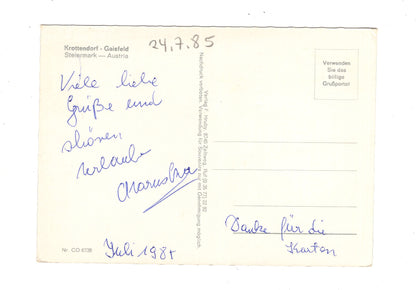 Krottendorf - Gaisfeld
Steiermark — Austria
24.7.85
Verwenden
Sie das
billige
Grußporto!
Viele liebe
Grüße und
schönen
Urlaub
Maruska
Danke für die
Karten
Nr. CO 6738
Juli 1985